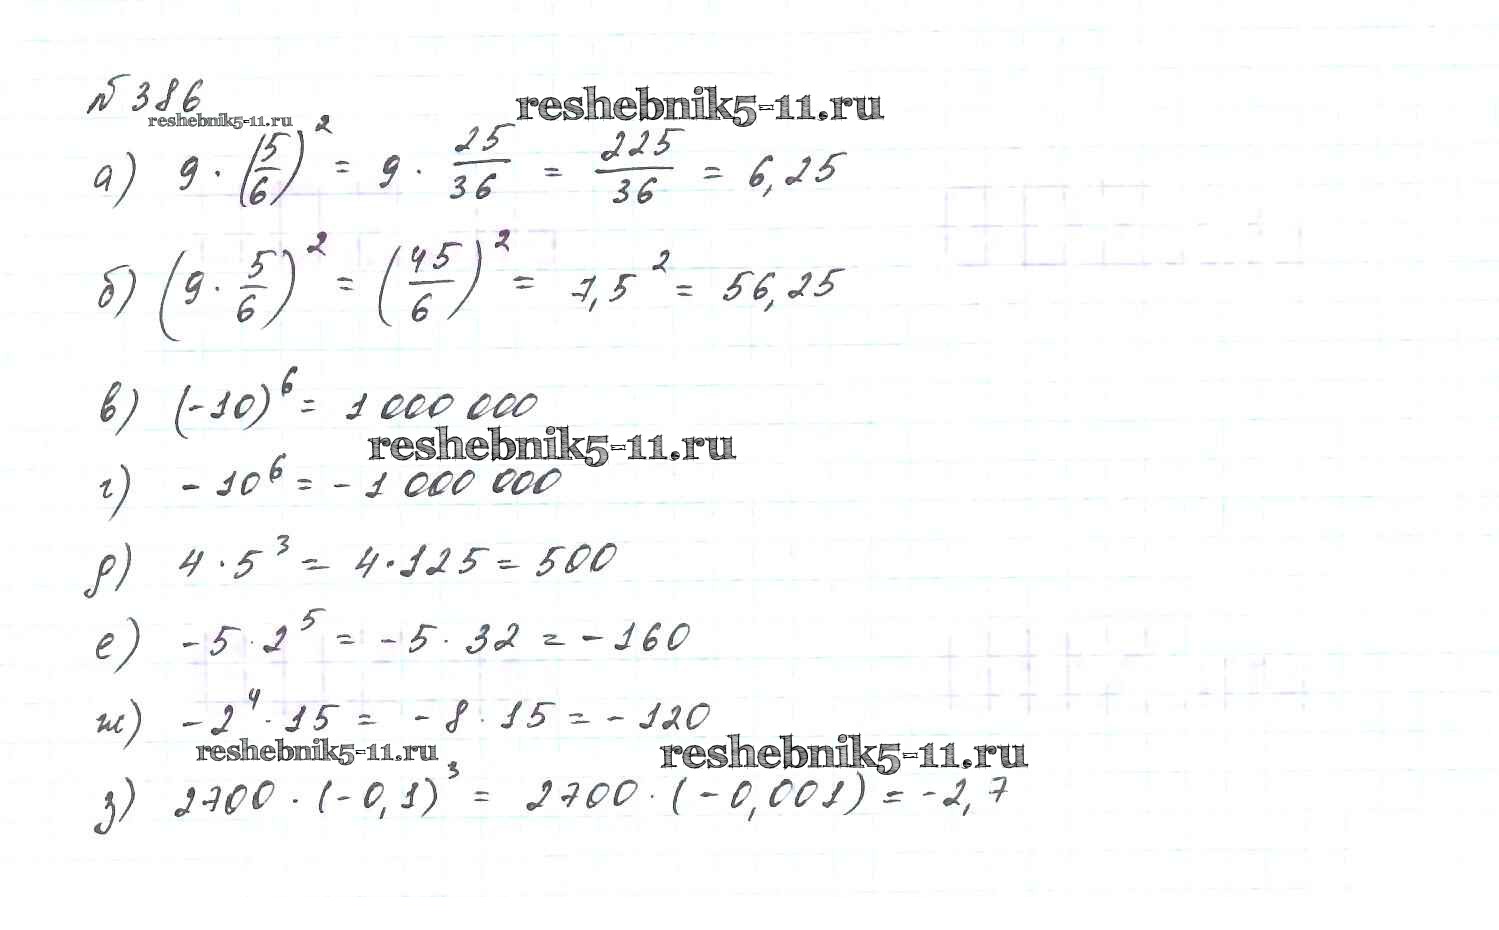 № 386
reshebnik5-11.ru
reshebnik5-11.ru
а) 9 · (5/6)² = 9 · 25/36 = 225/36 = 6,25
б) (9 · 5/6)² = (45/6)² = 7,5² = 56,25
в) (-10)⁶ = 1 000 000
reshebnik5-11.ru
г) - 10⁶ = - 1 000 000
д) 4 · 5³ = 4 · 125 = 500
е) - 5 · 2⁵ = - 5 · 32 = - 160
ж) - 2⁴ · 15 = - 8 · 15 = - 120
reshebnik5-11.ru
reshebnik5-11.ru
з) 2700 · (-0,1)³ = 2700 · (-0,001) = -2,7